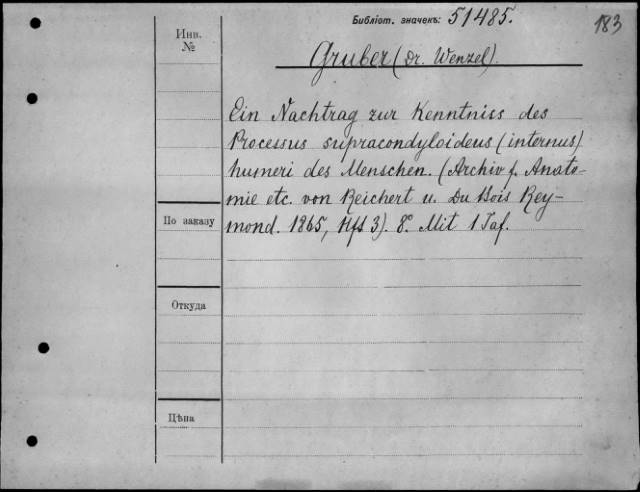 Библіот. значекъ: 51485.
183
Инв. №
Gruber (Dr. Wenzel).
Ein Nachtrag zur Kenntniss des
Processus supracondyloideus (internus)
humeri des Menschen. (Archiv f. Anato-
mie etc. von Reichert u. Du Bois Rey-
mond. 1865, Hft 3). 8°. Mit 1 Taf.
По заказу
Откуда
Цѣна